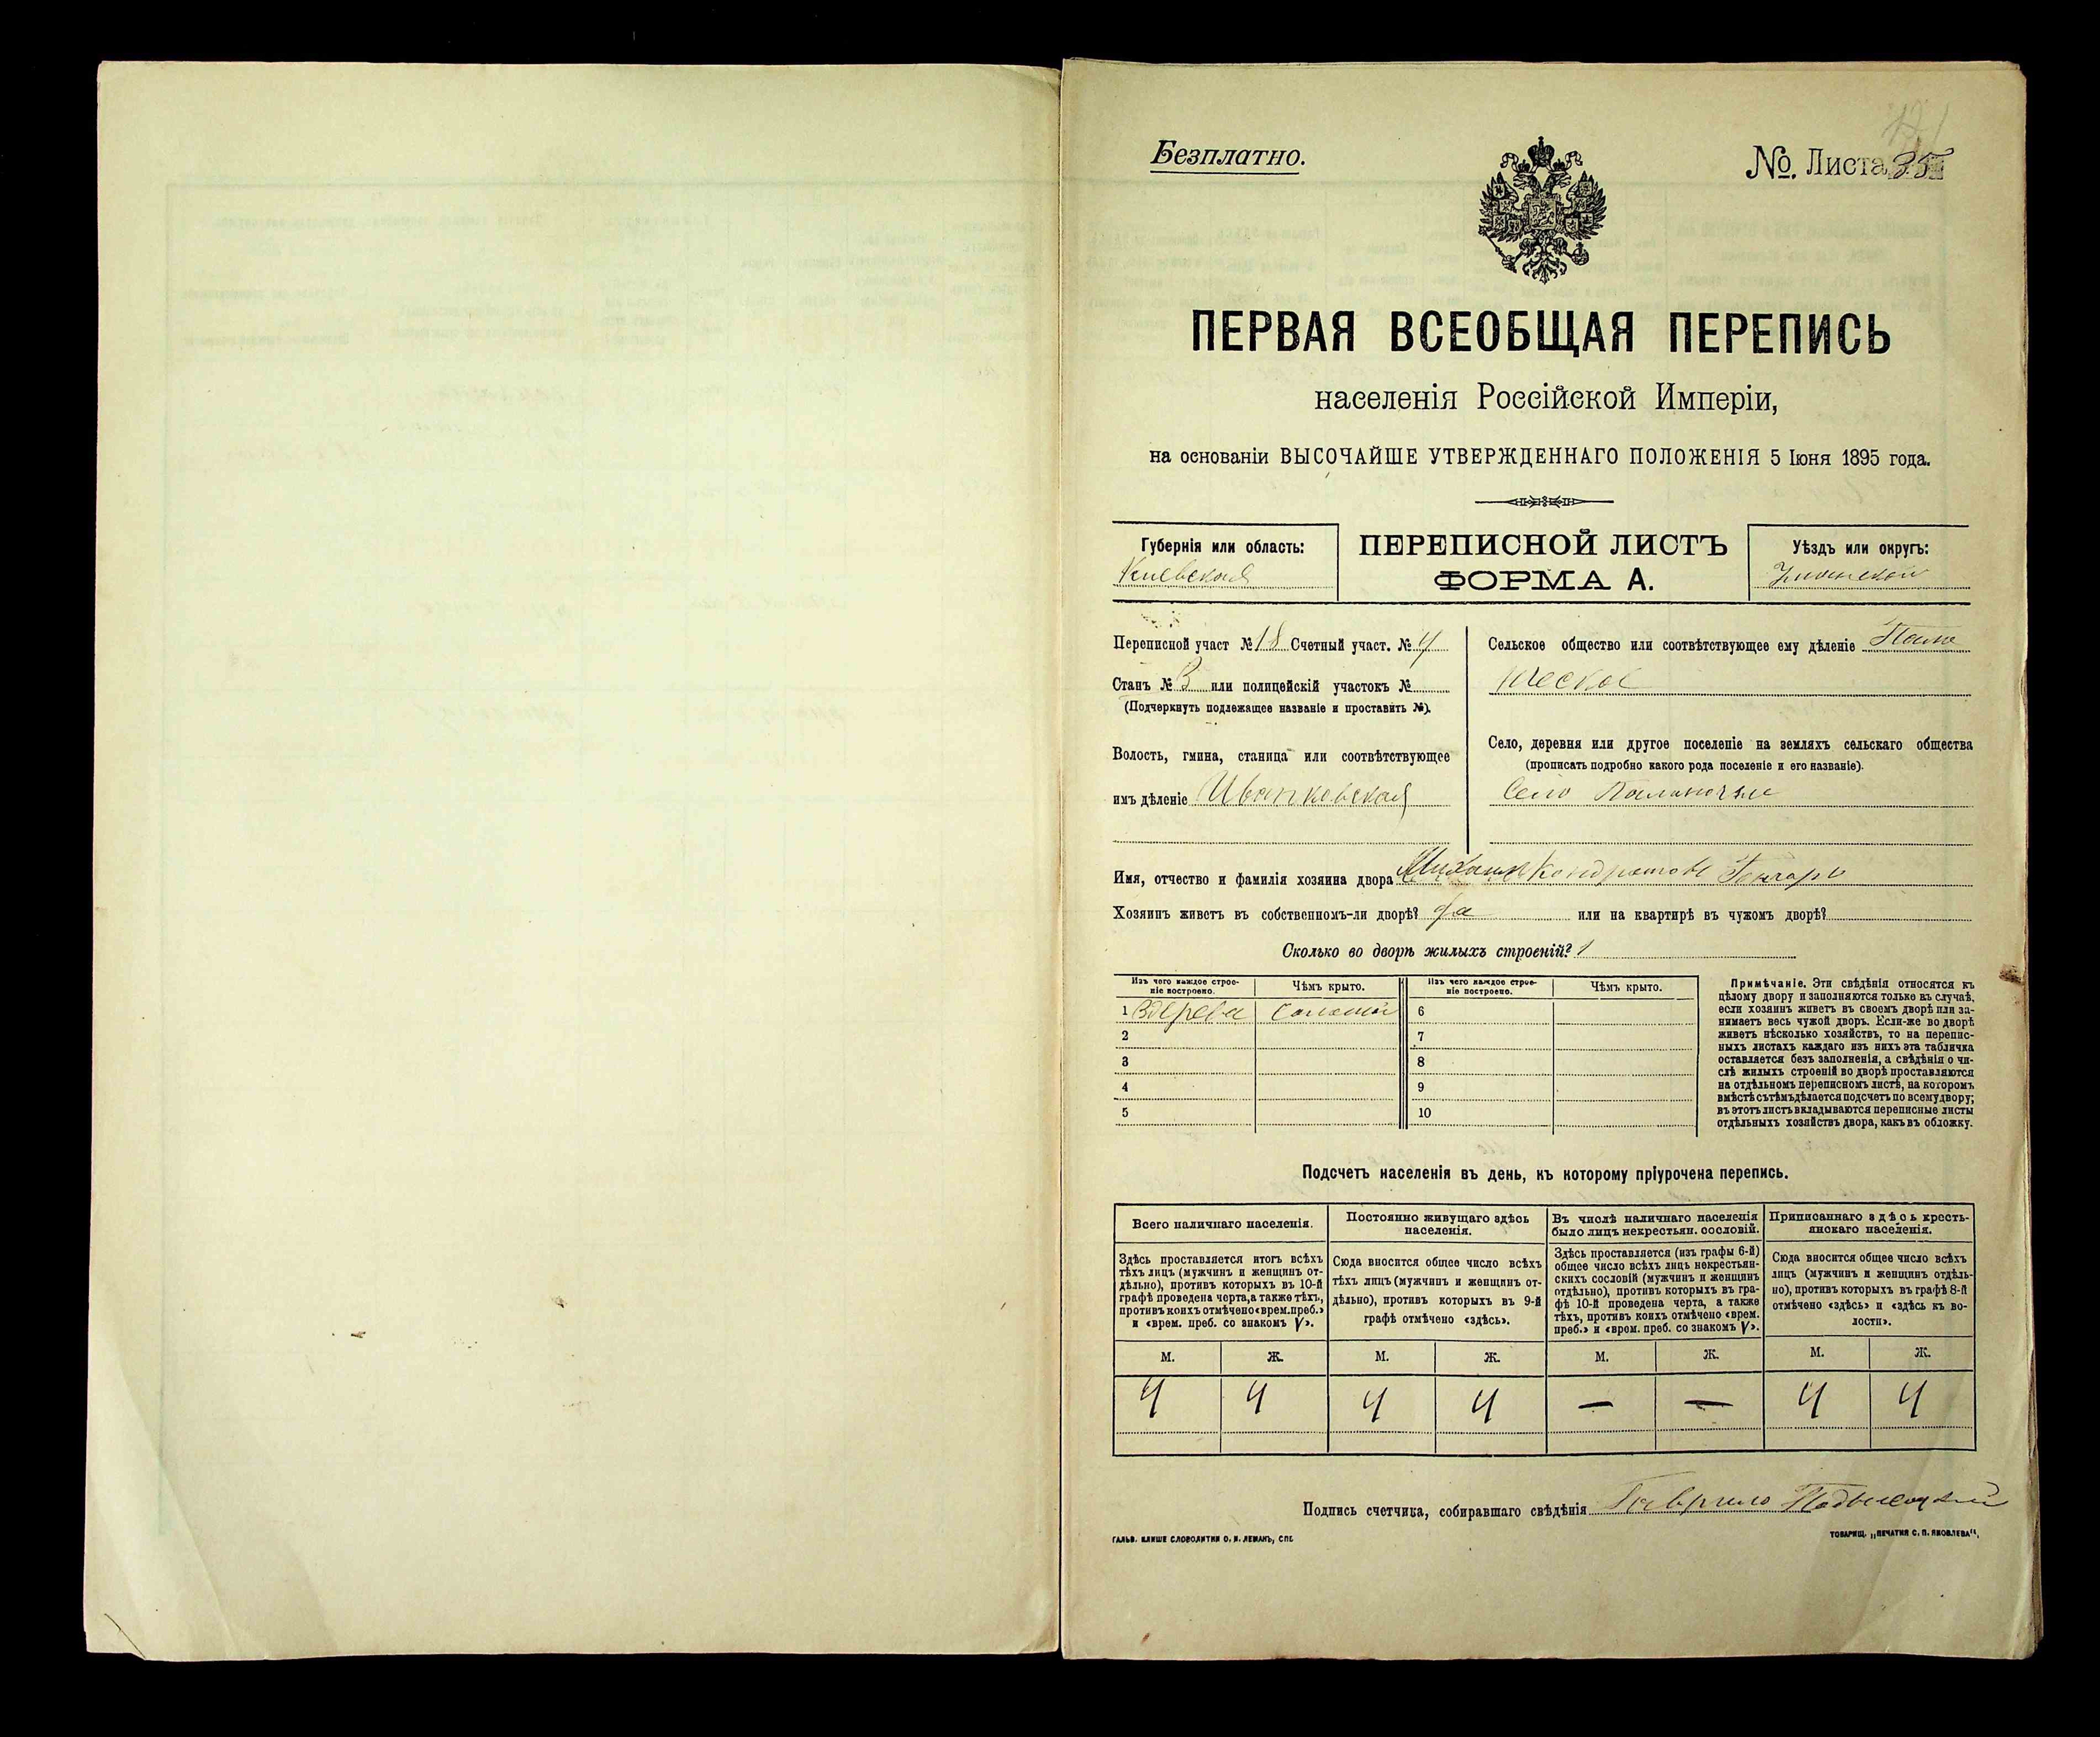 Безплатно.
№. Листа 35
ПЕРВАЯ ВСЕОБЩАЯ ПЕРЕПИСЬ
населенія Россійской Имперіи,
на основаніи ВЫСОЧАЙШЕ УТВЕРЖДЕННАГО ПОЛОЖЕНІЯ 5 Іюня 1895 года.
Губернія или область:
Кіевская
ПЕРЕПИСНОЙ ЛИСТЪ
ФОРМА А.
Уѣздъ или округъ:
Уманскій
Переписной участ № 18 Счетный участ. № 4
Станъ № 3 или полицейскій участокъ №
(Подчеркнуть подлежащее названіе и проставить №).
Волость, гмина, станица или соотвѣтствующее
имъ дѣленіе Иваньковская
Сельское общество или соотвѣтствующее ему дѣленіе
Село, деревня или другое поселеніе на земляхъ сельскаго общества
(прописать подробно какого рода поселеніе и его названіе).
Село
Имя, отчество и фамилія хозяина двора Михаилъ Кондратовъ Гончаръ
Хозяинъ живетъ въ собственномъ-ли дворѣ? да или на квартирѣ въ чужомъ дворѣ?
Сколько во дворѣ жилыхъ строеній? 1
Изъ чего каждое строе-
ніе построено.
Чѣмъ крыто.
Изъ чего каждое строе-
ніе построено.
Чѣмъ крыто.
1 Здерева соломой 6
2 7
3 8
4 9
5 10
Примѣчаніе. Эти свѣдѣнія относятся къ
цѣлому двору и заполняются только въ случаѣ,
если хозяинъ живетъ въ своемъ дворѣ или за-
нимаетъ весь чужой дворъ. Если-же во дворѣ
живетъ нѣсколько хозяйствъ, то на перепис-
ныхъ листахъ каждаго изъ нихъ эта табличка
оставляется безъ заполненія, а свѣдѣнія о чи-
слѣ жилыхъ строеній во дворѣ проставляются
на отдѣльномъ переписномъ листѣ, на которомъ
вмѣстѣ съ тѣмъ дѣлается подсчетъ по всему двору;
въ этотъ листъ вкладываются переписные листы
отдѣльныхъ хозяйствъ двора, какъ въ обложку.
Подсчетъ населенія въ день, къ которому пріурочена перепись.
Всего наличнаго населенія.
Здѣсь проставляется итогъ всѣхъ
тѣхъ лицъ (мужчинъ и женщинъ от-
дѣльно), противъ которыхъ въ 10-й
графѣ проведена черта, а также тѣхъ,
противъ коихъ отмѣчено «врем. преб.»
и «врем. преб. со знакомъ V».
Постоянно живущаго здѣсь
населенія.
Сюда вносится общее число всѣхъ
тѣхъ лицъ (мужчинъ и женщинъ от-
дѣльно), противъ которыхъ въ 9-й
графѣ отмѣчено «здѣсь».
Въ числѣ наличнаго населенія
было лицъ некрестьян. сословій.
Здѣсь проставляется (изъ графы 6-й)
общее число всѣхъ лицъ некрестьян-
скихъ сословій (мужчинъ и женщинъ
отдѣльно), противъ которыхъ въ гра-
фѣ 10-й проведена черта, а также
тѣхъ, противъ коихъ отмѣчено «врем.
преб.» и «врем. преб. со знакомъ V».
Приписаннаго здѣсь кресть-
янскаго населенія.
Сюда вносится общее число всѣхъ
лицъ (мужчинъ и женщинъ отдѣль-
но), противъ которыхъ въ графѣ 8-й
отмѣчено «здѣсь» и «здѣсь къ во-
лости».
М. Ж. М. Ж. М. Ж. М. Ж.
4 4 4 4 — — 4 4
Подпись счетчика, собиравшаго свѣдѣнія Гаврило
ГАЛЬВ. КЛИШЕ СЛОВОЛИТНИ О. И. ЛЕМАНЪ, СПБ.
ТОВАРИЩ. „ПЕЧАТНЯ С. П. ЯКОВЛЕВА“.